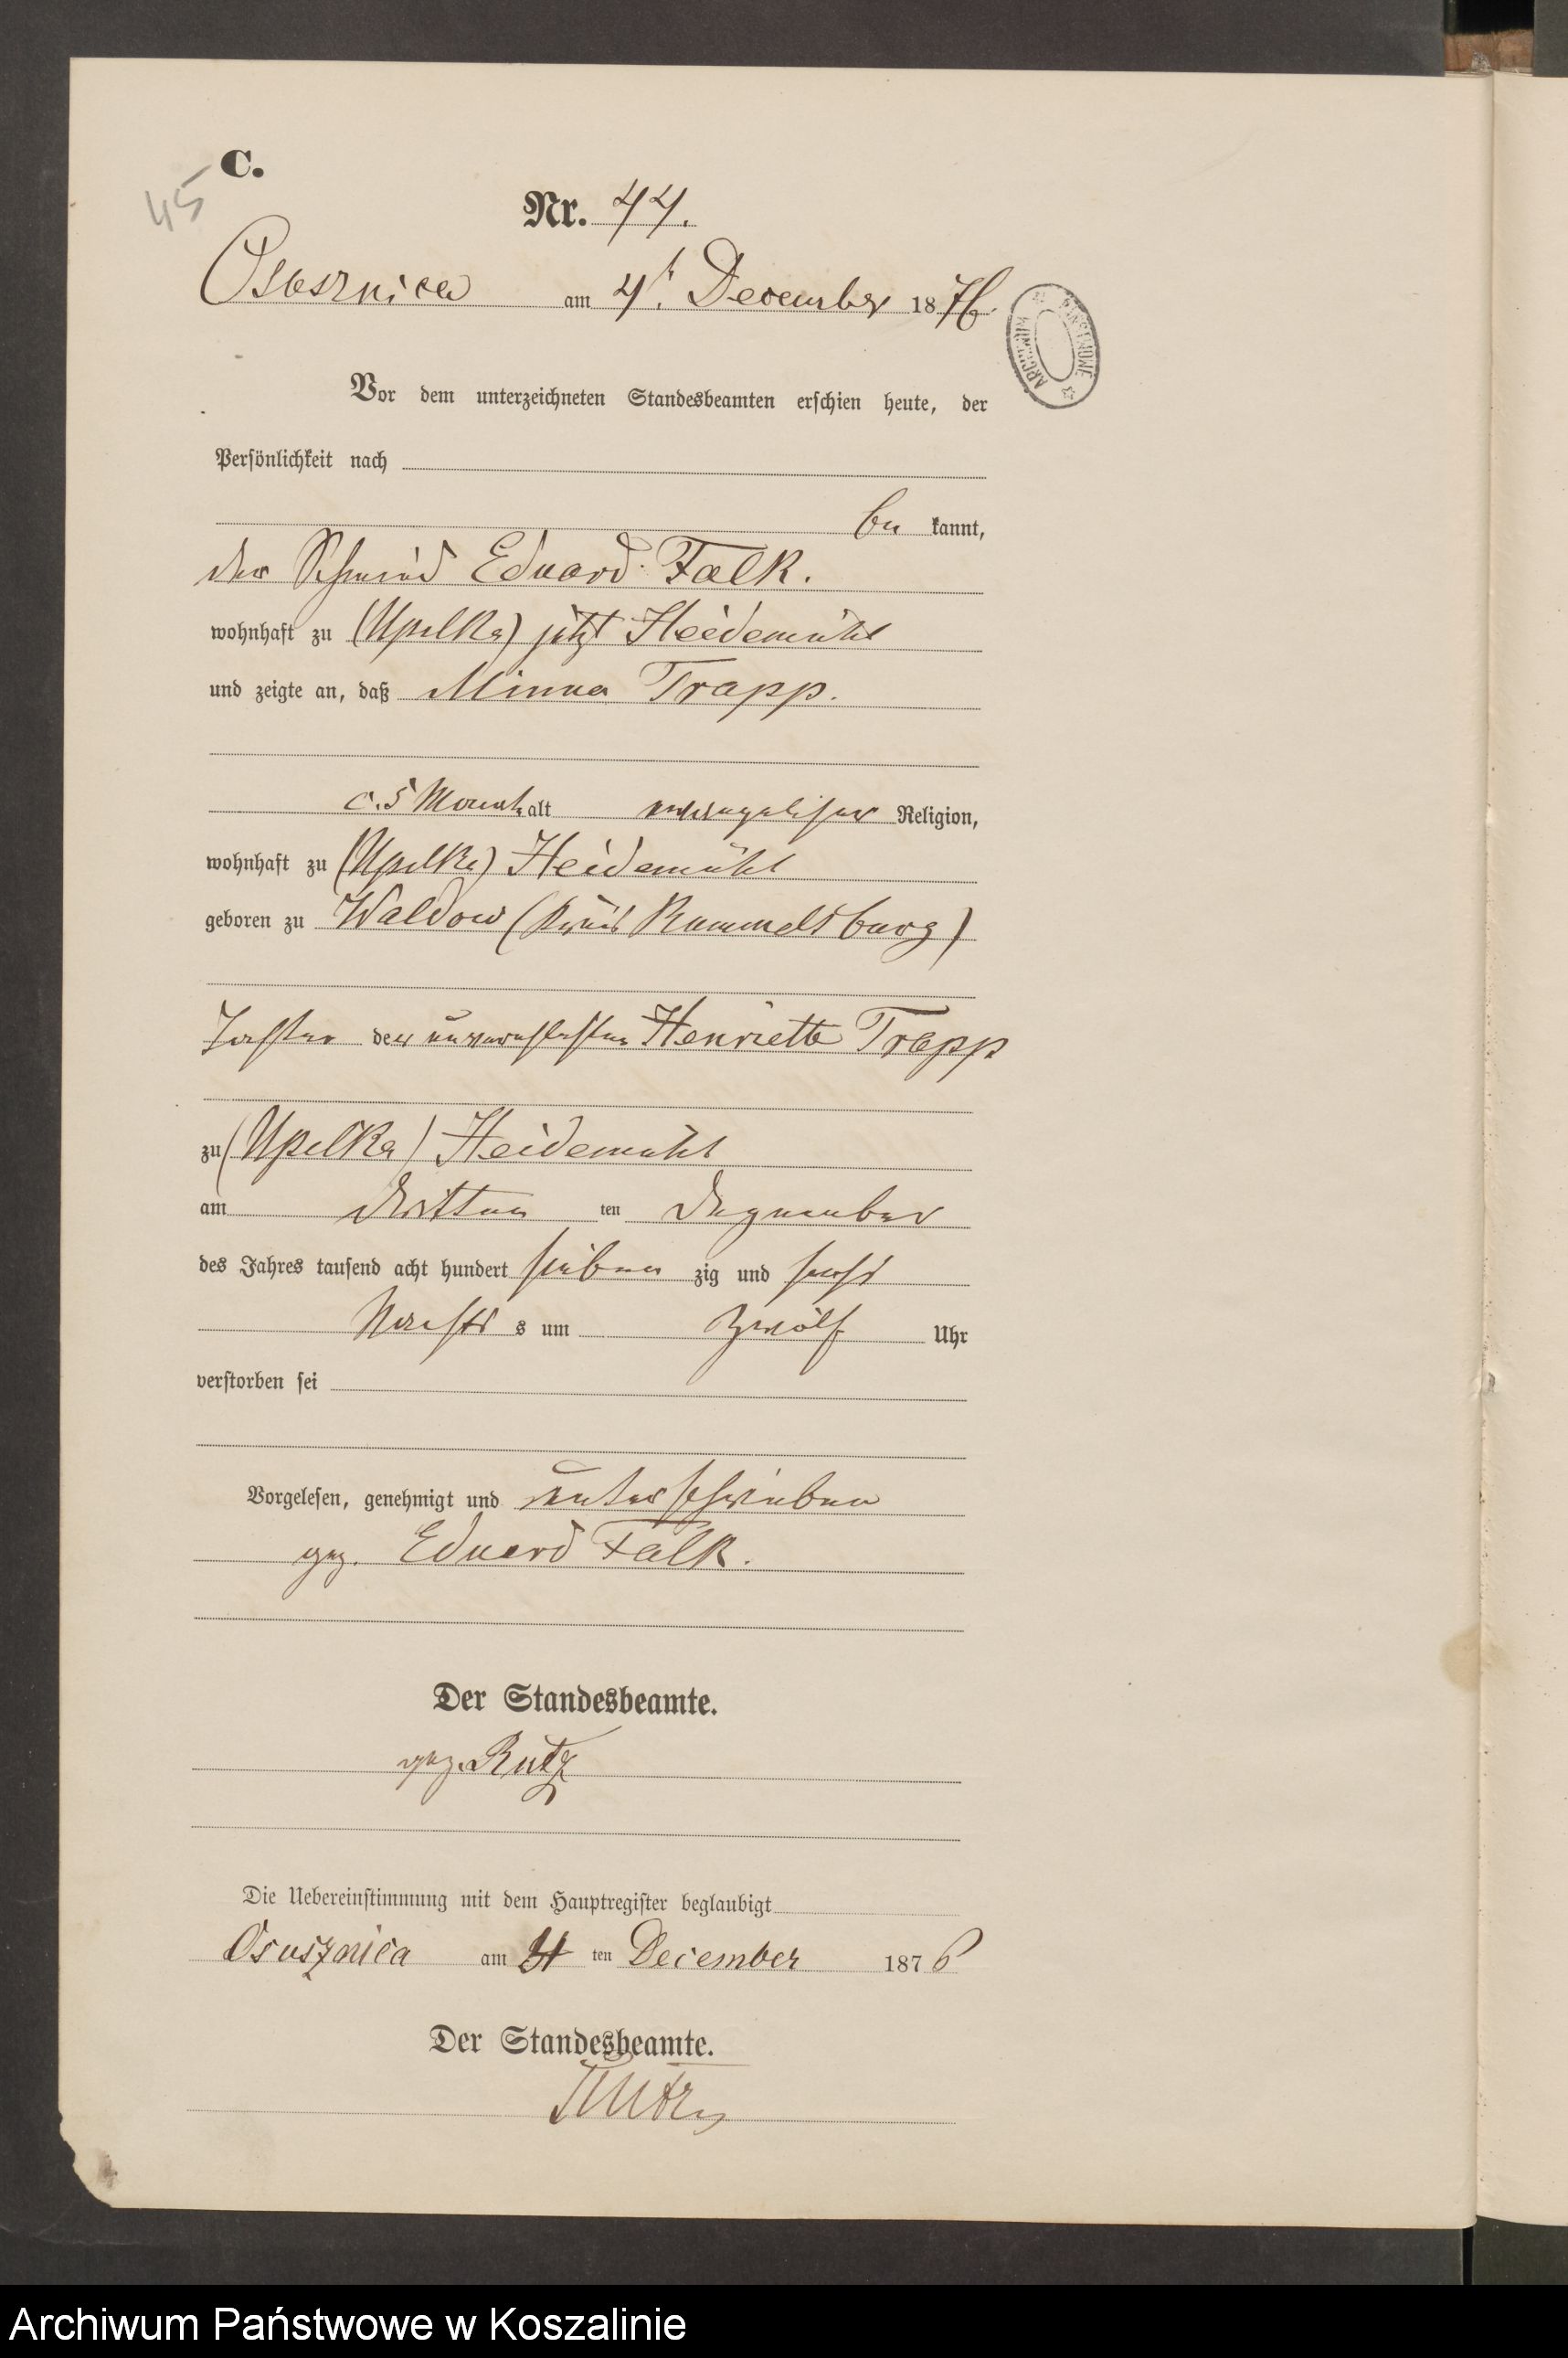 C.
45
Nr. 44.
Osusznica am 4t. December 1876.
ARCHIWUM PAŃSTWOWE
Vor dem unterzeichneten Standesbeamten erschien heute, der
Persönlichkeit nach
be kannt,
der Schmied Eduard Falk.
wohnhaft zu (Upilka) jetzt Heidemühl
und zeigte an, daß Minna Trapp.
c. 5 Monat alt evangelischer Religion,
wohnhaft zu (Upilka) Heidemühl
geboren zu Waldow (Kreis Rummelsburg)
Tochter der unverehelichten Henriette Trapp
zu (Upilka) Heidemühl
am dritten ten Dezember
des Jahres tausend acht hundert sieben zig und sechs
Nachts s um zwölf Uhr
verstorben sei
Vorgelesen, genehmigt und unterschrieben
gez. Eduard Falk.
Der Standesbeamte.
gez. Rutz
Die Uebereinstimmung mit dem Hauptregister beglaubigt
Osusznica am 4 ten December 1876
Der Standesbeamte.
Rutz
Archiwum Państwowe w Koszalinie